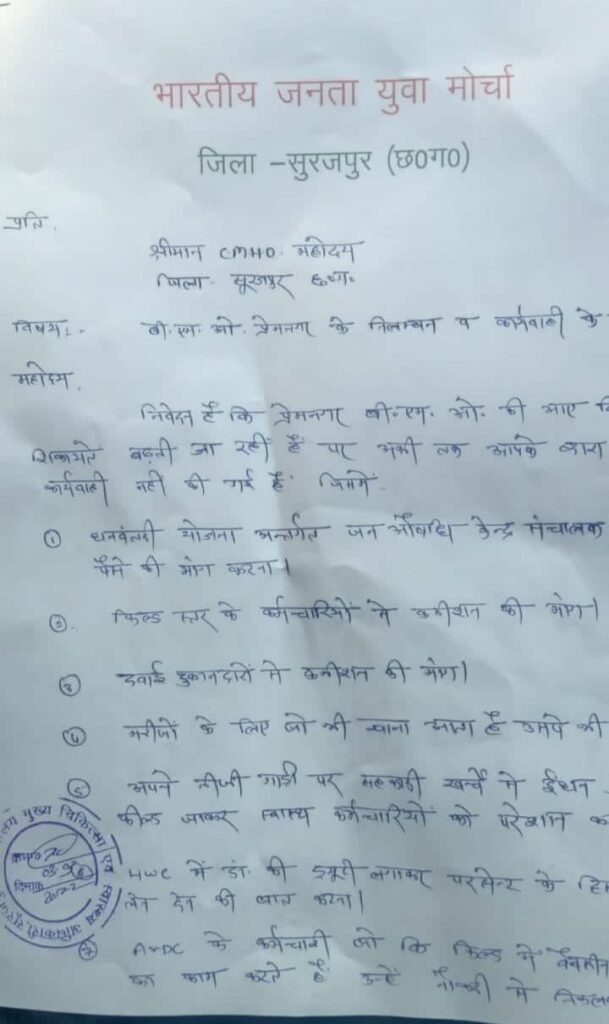 भारतीय जनता युवा मोर्चा
जिला -सुरजपुर (छ0ग0)
प्रति,
श्रीमान CMHO. महोदय
जिला- सूरजपुर छ.ग.
विषय:- बी.एम.ओ. प्रेमनगर के निलम्बन व कार्यवाही के
महोदय,
निवेदन है कि प्रेमनगर बी.एम.ओ. की आए
शिकायते बढ़ती जा रही है पर अभी तक आपके द्वारा
कार्यवाही नही की गई है। जिसमें
① धनवंतरी योजना अन्तर्गत जन औषधि केन्द्र संचालक
पैसे की मांग करना।
②. फिल्ड स्तर के कर्मचारियों से कमीशन की मांग।
③ दवाई दुकानदारों से कमीशन की मांग।
④ मरीजों के लिए जो भी खाना आता है उसमे भी
⑤ अपने नीजी गाडी पर सरकारी खर्चे से ईंधन
फील्ड जाकर स्वास्थ्य कर्मचारियों को परेशान
HWC में डॉ. की ड्यूटी लगाकर परसेन्ट के
लेन देन की बात करना।
⑦ के कर्मचारी जो कि फिल्ड में
का काम करते है उन्हें नौकरी से
मुख्य चिकित्सा एवं स्वास्थ्य अधिकारी,
दिनांक